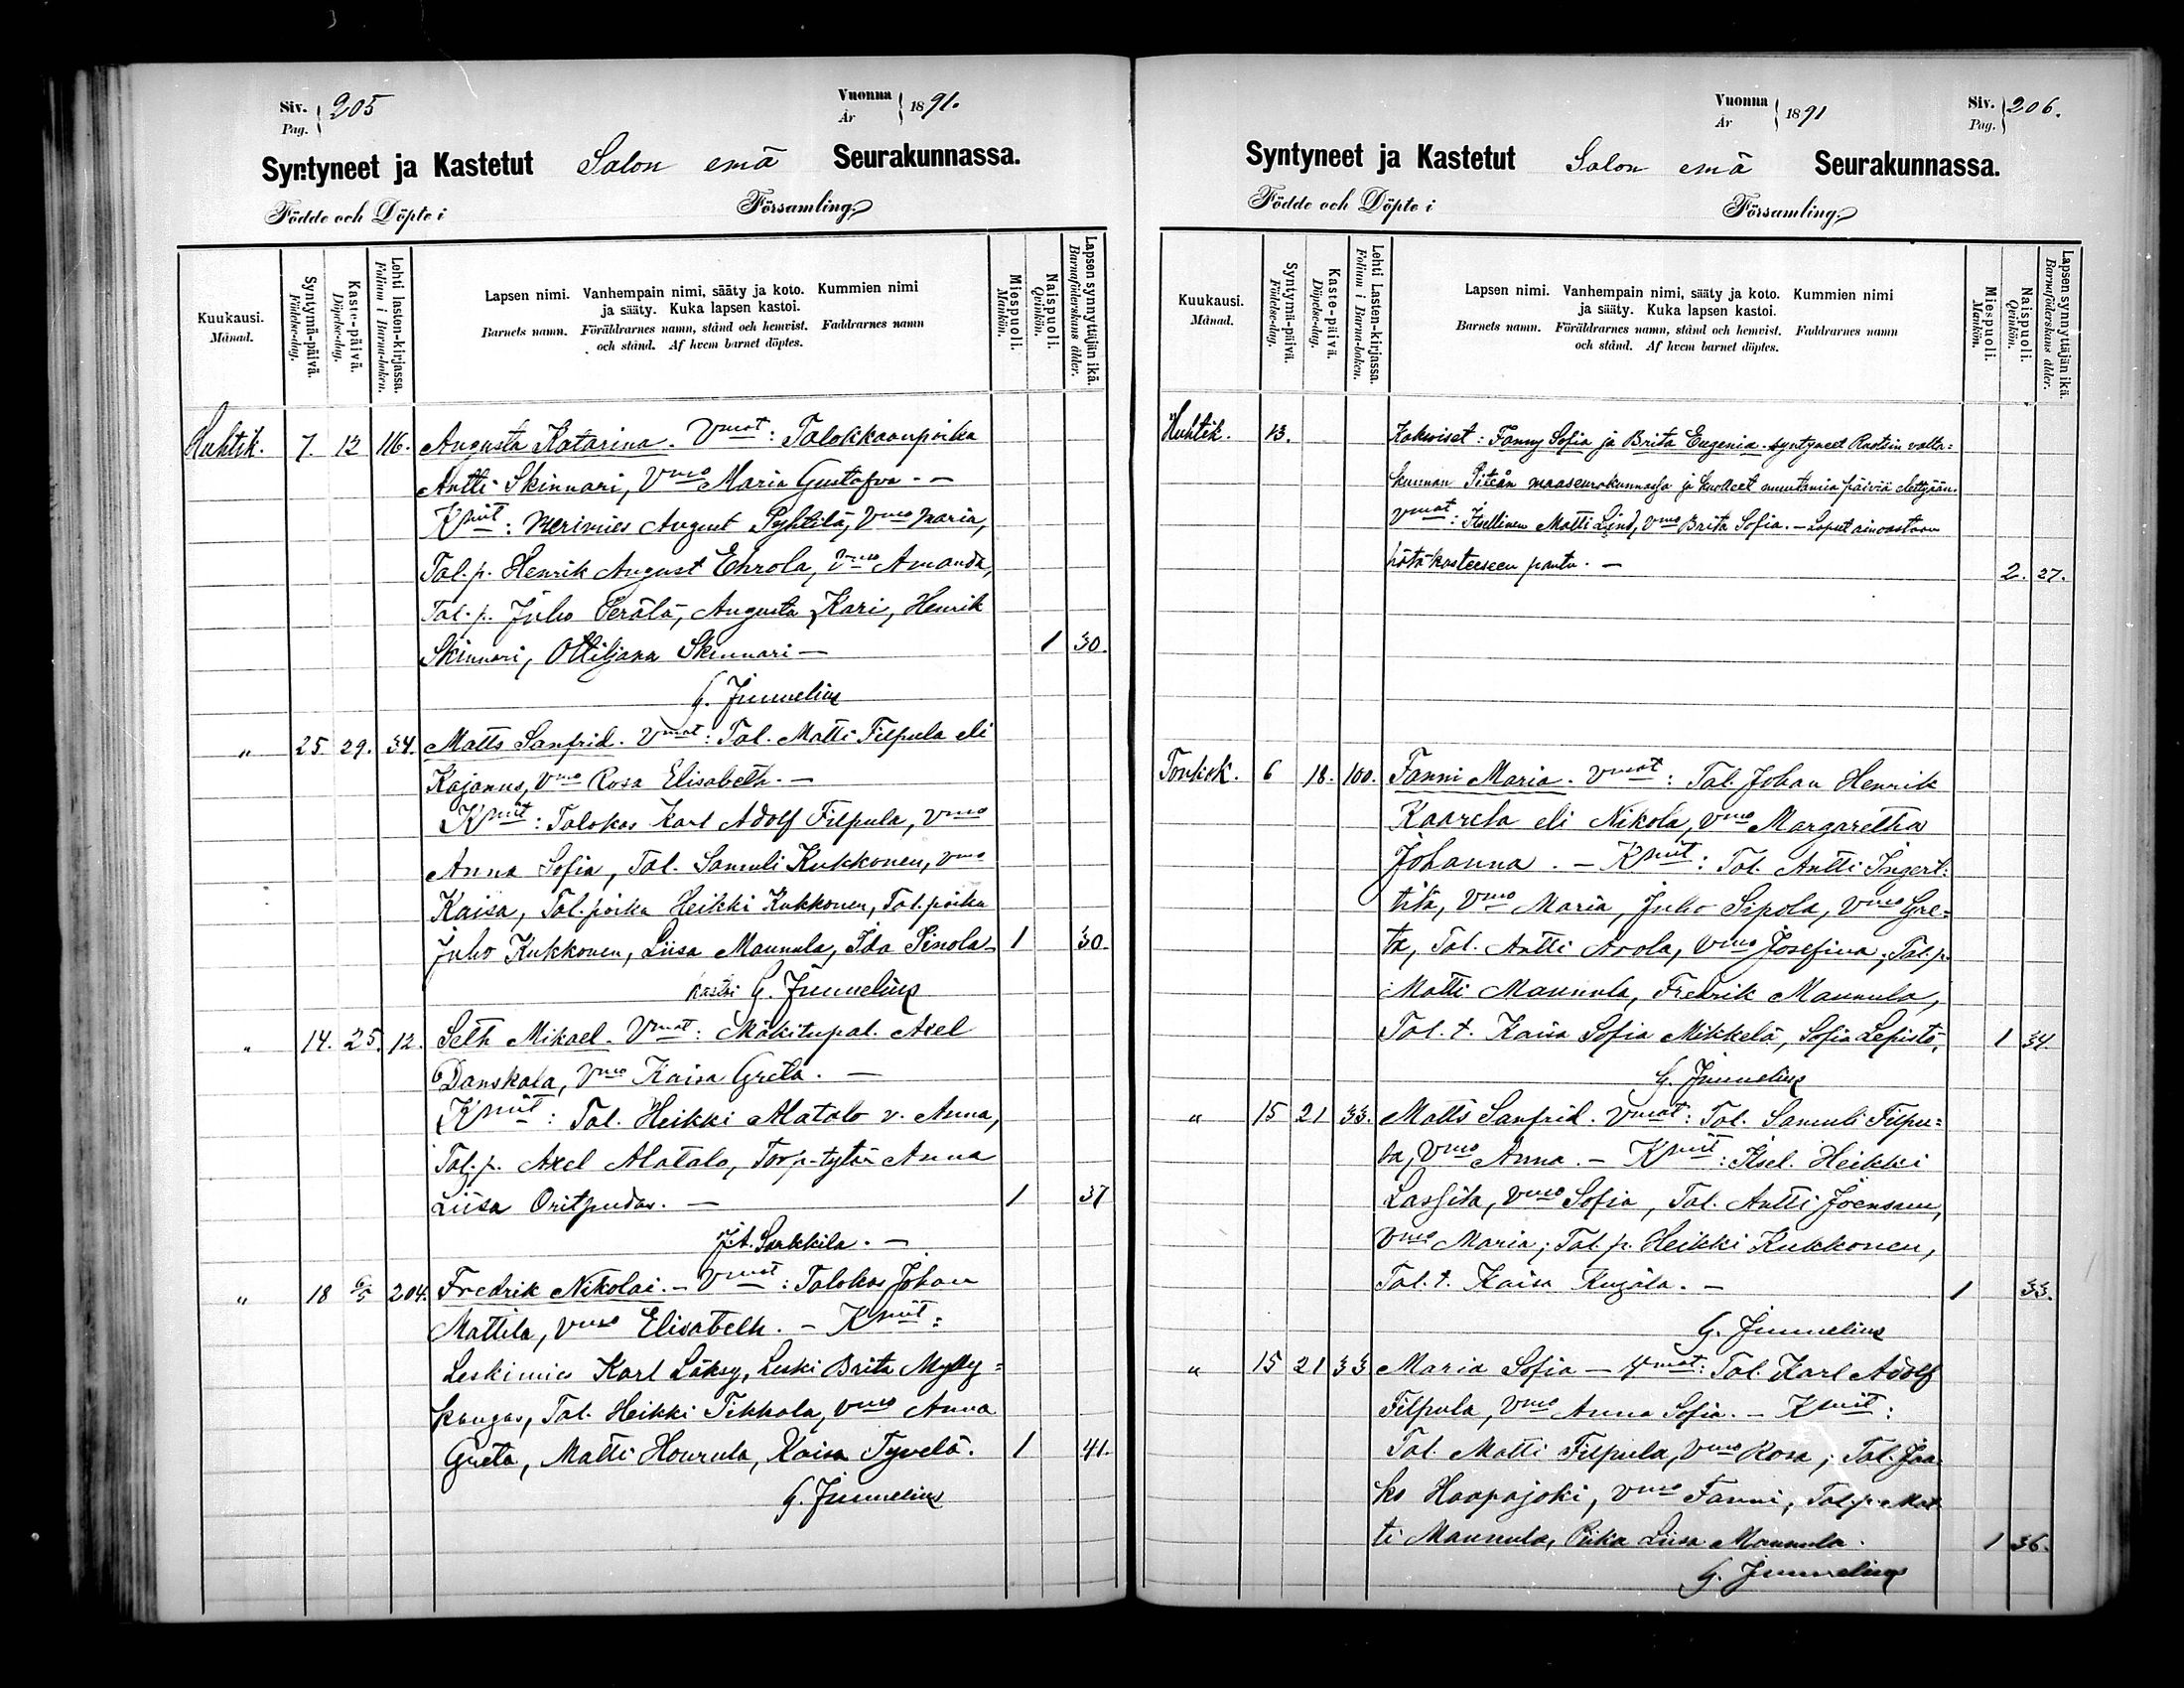 Siv. Pag. 205
Vuonna År 1891.
Syntyneet ja Kastetut Salon emä Seurakunnassa.
Födde och Döpte i Församling.
Kuukausi. Månad.
Syntymä-päivä. Födelse-dag.
Kaste-päivä. Döpelse-dag.
Lehti lasten-kirjassa. Folium i Barna-boken.
Lapsen nimi. Vanhempain nimi, sääty ja koto. Kummien nimi
ja sääty. Kuka lapsen kastoi.
Barnets namn. Föräldrarnes namn, stånd och hemvist. Faddrarnes namn
och stånd. Af hvem barnet döptes.
Miespuoli. Mankön.
Naispuoli. Qvinkön.
Lapsen synnyttäjän ikä. Barnaföderskans ålder.
Huhtik. 7. 12 116. Augusta Katarina. Vmat: Talokkaanpoika
Antti Skinnari, Vmo Maria Gustafva. -
Kmit: Merimies August Pyhtilä, Vmo Maria,
Tal. p. Henrik August Ehrola, Vmo Amanda,
Tal. p. Juho Perälä, Augusta Kari, Henrik
Skinnari, Ottiljana Skinnari - 1 30.
G. Junnelius
" 25 29. 34. Matts Sanfrid. Vmat: Tal. Matti Filpula eli
Kajanus, Vmo Rosa Elisabeth. -
Kmit: Talokas Karl Adolf Filpula, Vmo
Anna Sofia, Tal. Samuli Kukkonen, Vmo
Kaisa, Tal. poika Heikki Kukkonen, Tal. poika
Juho Kukkonen, Liisa Mannula, Ida Pinola. 1 30.
kastoi G. Junnelius
" 14. 25. 12. Seth Mikael. Vmat: Mäkitupal. Axel
Danskala, Vmo Kaisa Greta. -
Kmit: Tal. Heikki Alatalo v. Anna,
Tal. p. Axel Alatalo, Torp-tytär Anna
Liisa Oritpudas. - 1 37
J. A. Sarkkila. -
" 18 6/5 204. Fredrik Nikolai. - Vmat: Talokas Johan
Mattila, Vmo Elisabeth. - Kmit:
Leskimies Karl Läksy, Leski Brita Mylly=
kangas, Tal. Heikki Tikkala, Vmo Anna
Greta, Matti Hourula, Kaisa Tyvelä. 1 41.
G. Junnelius
Vuonna År 1891
Siv. Pag. 206.
Syntyneet ja Kastetut Salon emä Seurakunnassa.
Födde och Döpte i Församling.
Kuukausi. Månad.
Syntymä-päivä. Födelse-dag.
Kaste-päivä. Döpelse-dag.
Lehti Lasten-kirjassa. Folium i Barna-boken.
Lapsen nimi. Vanhempain nimi, sääty ja koto. Kummien nimi
ja sääty. Kuka lapsen kastoi.
Barnets namn. Föräldrarnes namn, stånd och hemvist. Faddrarnes namn
och stånd. Af hvem barnet döptes.
Miespuoli. Mankön.
Naispuoli. Qvinkön.
Lapsen synnyttäjän ikä. Barnaföderskans ålder.
Huhtik. 13. Kakoiset: Fanny Sofia ja Brita Eugenia. syntyneet Ruotsin valta=
kunnan Piteån maaseurakunnassa ja kuolleet muutamia päiviä elettyään.
Vmat: Itsellinen Matti Lind, Vmo Brita Sofia. - Lapset ainoastaan
hätäkasteeseen pantu. - 2. 27.
Toukok. 6 18. 100. Fanni Maria. Vmat: Tal. Johan Henrik
Kaarela eli Nikola, Vmo Margaretha
Johanna. - Kmit: Tal. Antti Ingert=
tilä, Vmo Maria, Juho Sipola, Vmo Gre=
ta, Tal. Antti Arola, Vmo Josefina, Tal. p.
Matti Mannula, Fredrik Mannula,
Tal. t. Kaisa Sofia Mikkelä, Sofia Lepistö, 1 34.
G. Junnelius
" 15 21 33. Matts Sanfrid. Vmat: Tal. Samuli Filpu=
la, Vmo Anna. - Kmit: Itsel. Heikki
Lassila, Vmo Sofia, Tal. Antti Joensuu,
Vmo Maria; Tal p. Heikki Kukkonen,
Tal. t. Kaisa - 1 33.
G. Junnelius
" 15 21 33 Maria Sofia - Vmat: Tal. Karl Adolf
Filpula, Vmo Anna Sofia. - Kmit:
Tal. Matti Filpula, Vmo Rosa; Tal. Jaa
ko Haapajoki, Vmo Fanni, Tal. p. Mat
ti Mannula, Piika Liisa Mannula. 1 36.
G. Junnelius